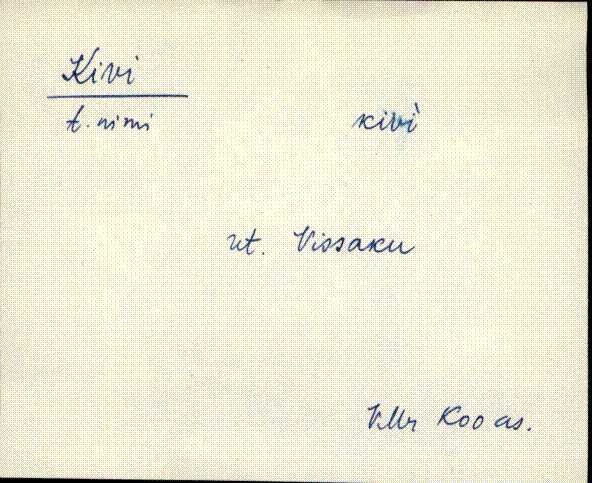 Kivi
t. nimi kivì
vt. Vissaku
VMr Koo as.